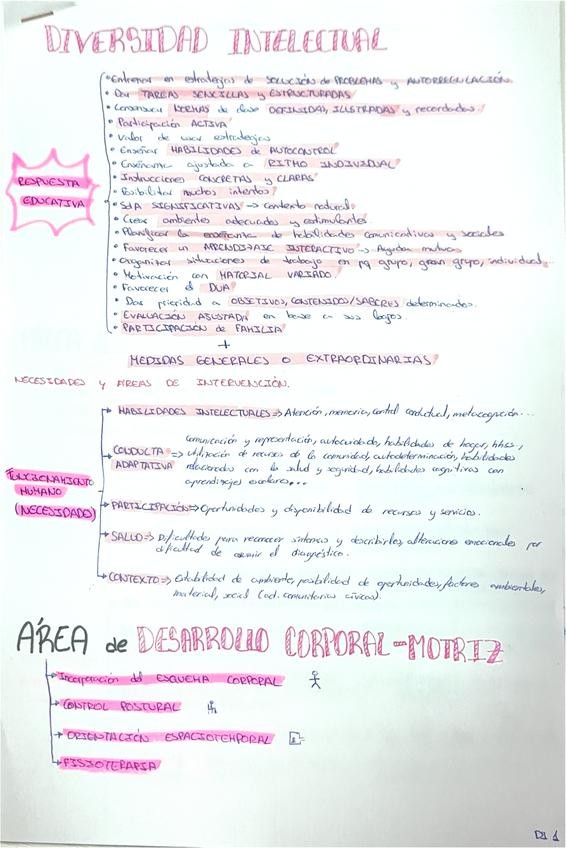 DIVERSIDAD INTELECTUAL
• Entrenar en estrategias de SOLUCIÓN de PROBLEMAS y AUTORREGULACIÓN.
• Dar TAREAS SENCILLAS y ESTRUCTURADAS
• Consensuar NORMAS de clase DEFINIDAS, ILUSTRADAS y recordadas.
• Participación ACTIVA
• Valor de usar estrategias
• Enseñar HABILIDADES de AUTOCONTROL
• Enseñanza ajustada a RITMO INDIVIDUAL
• Instrucciones CONCRETAS y CLARAS
• Posibilitar muchos intentos
RESPUESTA
EDUCATIVA
• SdA SIGNIFICATIVAS → contexto natural
• Crear ambientes adecuados y estimulantes
• Planificar la enseñanza de habilidades comunicativas y sociales
• Favorecer un APRENDIZAJE INTERACTIVO → Ayudas mutuas
• Organizar situaciones de trabajo en pq grupo, gran grupo, individual...
• Motivación con MATERIAL VARIADO
• Favorecer el DUA
• Dar prioridad a OBJETIVOS, CONTENIDOS/SABERES determinados.
• EVALUACIÓN AJUSTADA en base a sus logros.
• PARTICIPACIÓN de FAMILIA
+
MEDIDAS GENERALES O EXTRAORDINARIAS
NECESIDADES y ÁREAS DE INTERVENCIÓN.
FUNCIONAMIENTO
HUMANO
(NECESIDADES)
→ HABILIDADES INTELECTUALES => Atención, memoria, control conductual, metacognición...
CONDUCTA ADAPTATIVA => comunicación y representación, autocuidado, habilidades de hogar, hhss,
utilización de recursos de la comunidad, autodeterminación, habilidades
relacionadas con la salud y seguridad, habilidades cognitivas con
aprendizajes escolares...
→ PARTICIPACIÓN => Oportunidades y disponibilidad de recursos y servicios.
→ SALUD => Dificultades para reconocer síntomas y describirlos, alteraciones emocionales por
dificultad de asumir el diagnóstico.
→ CONTEXTO => Estabilidad de ambiente, posibilidad de oportunidades, factores ambientales,
material, social (act. comunitarias cívicas).
ÁREA de DESARROLLO CORPORAL-MOTRIZ
→ Incorporación del ESQUEMA CORPORAL
→ CONTROL POSTURAL
→ ORIENTACIÓN ESPACIOTEMPORAL
→ FISIOTERAPIA
DI 1